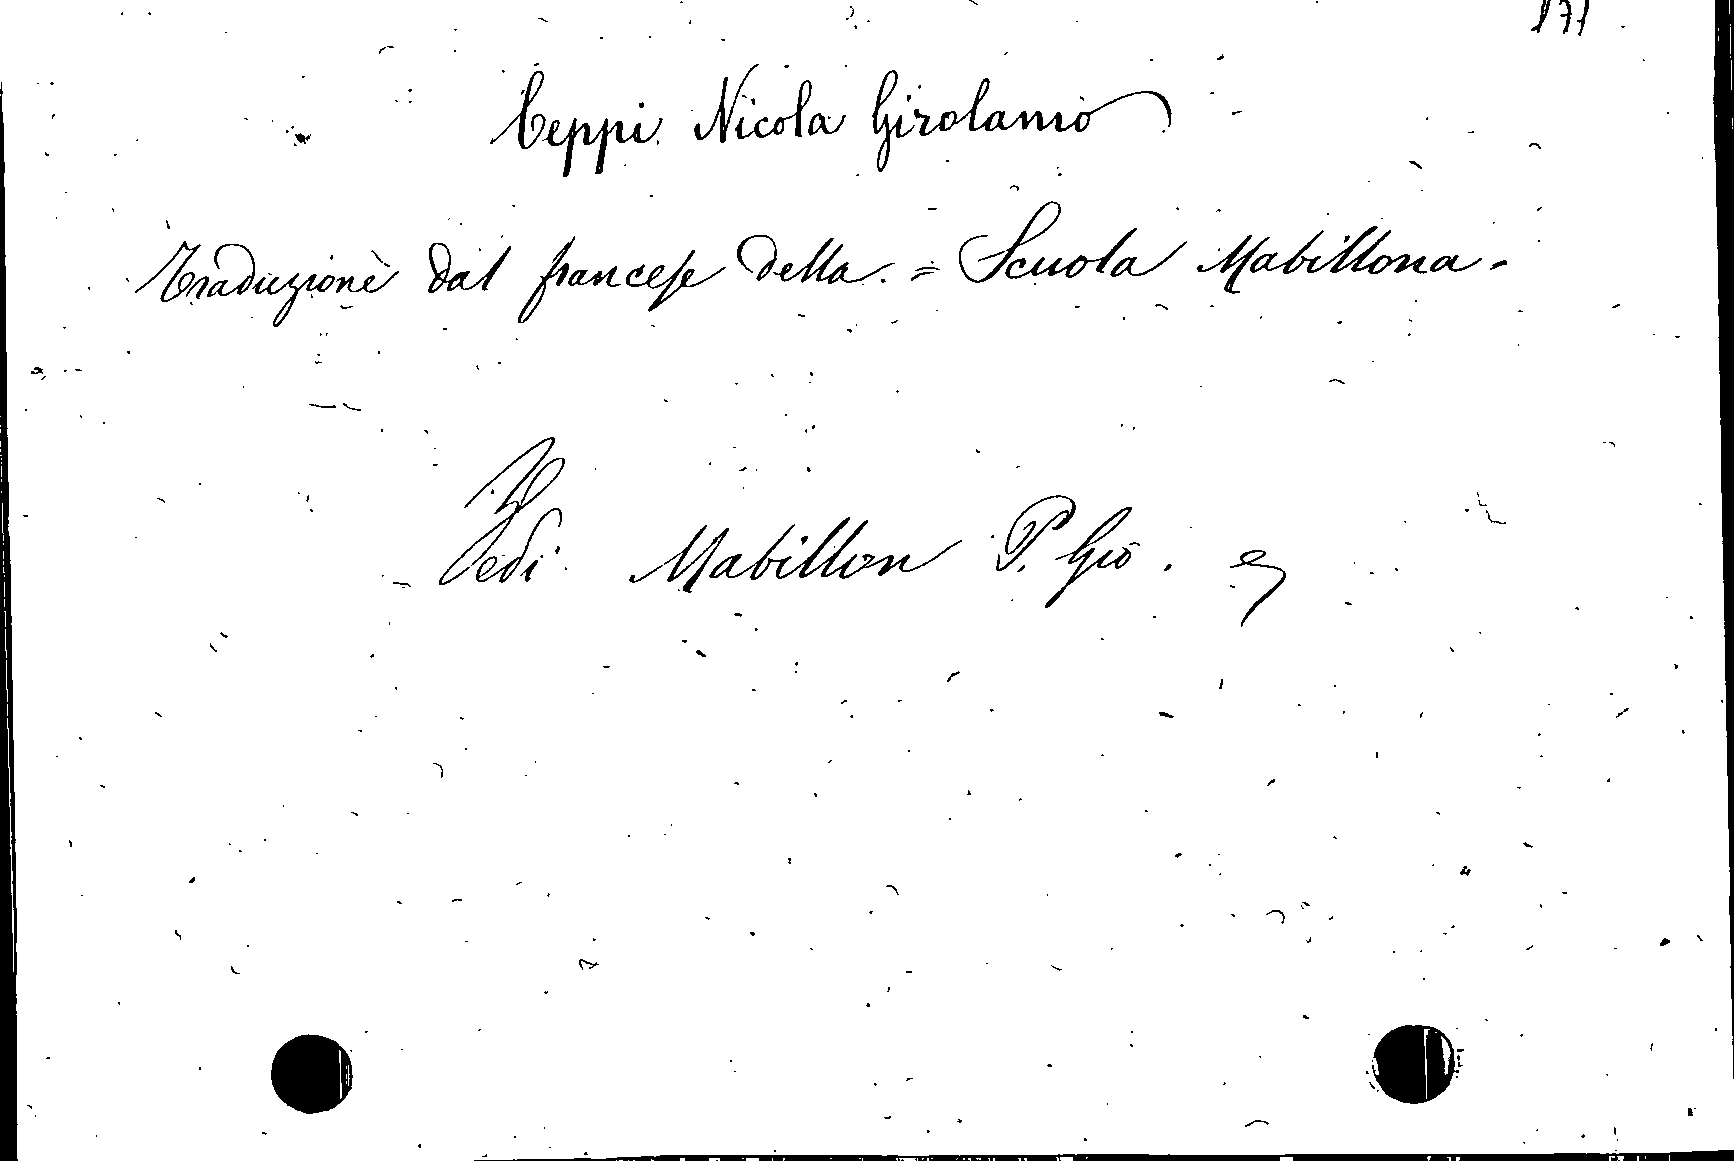 171
Ceppi Nicola Girolamo
Traduzione dal francese della = Scuola Mabillona =
Vedi Mabillon P. Gio.